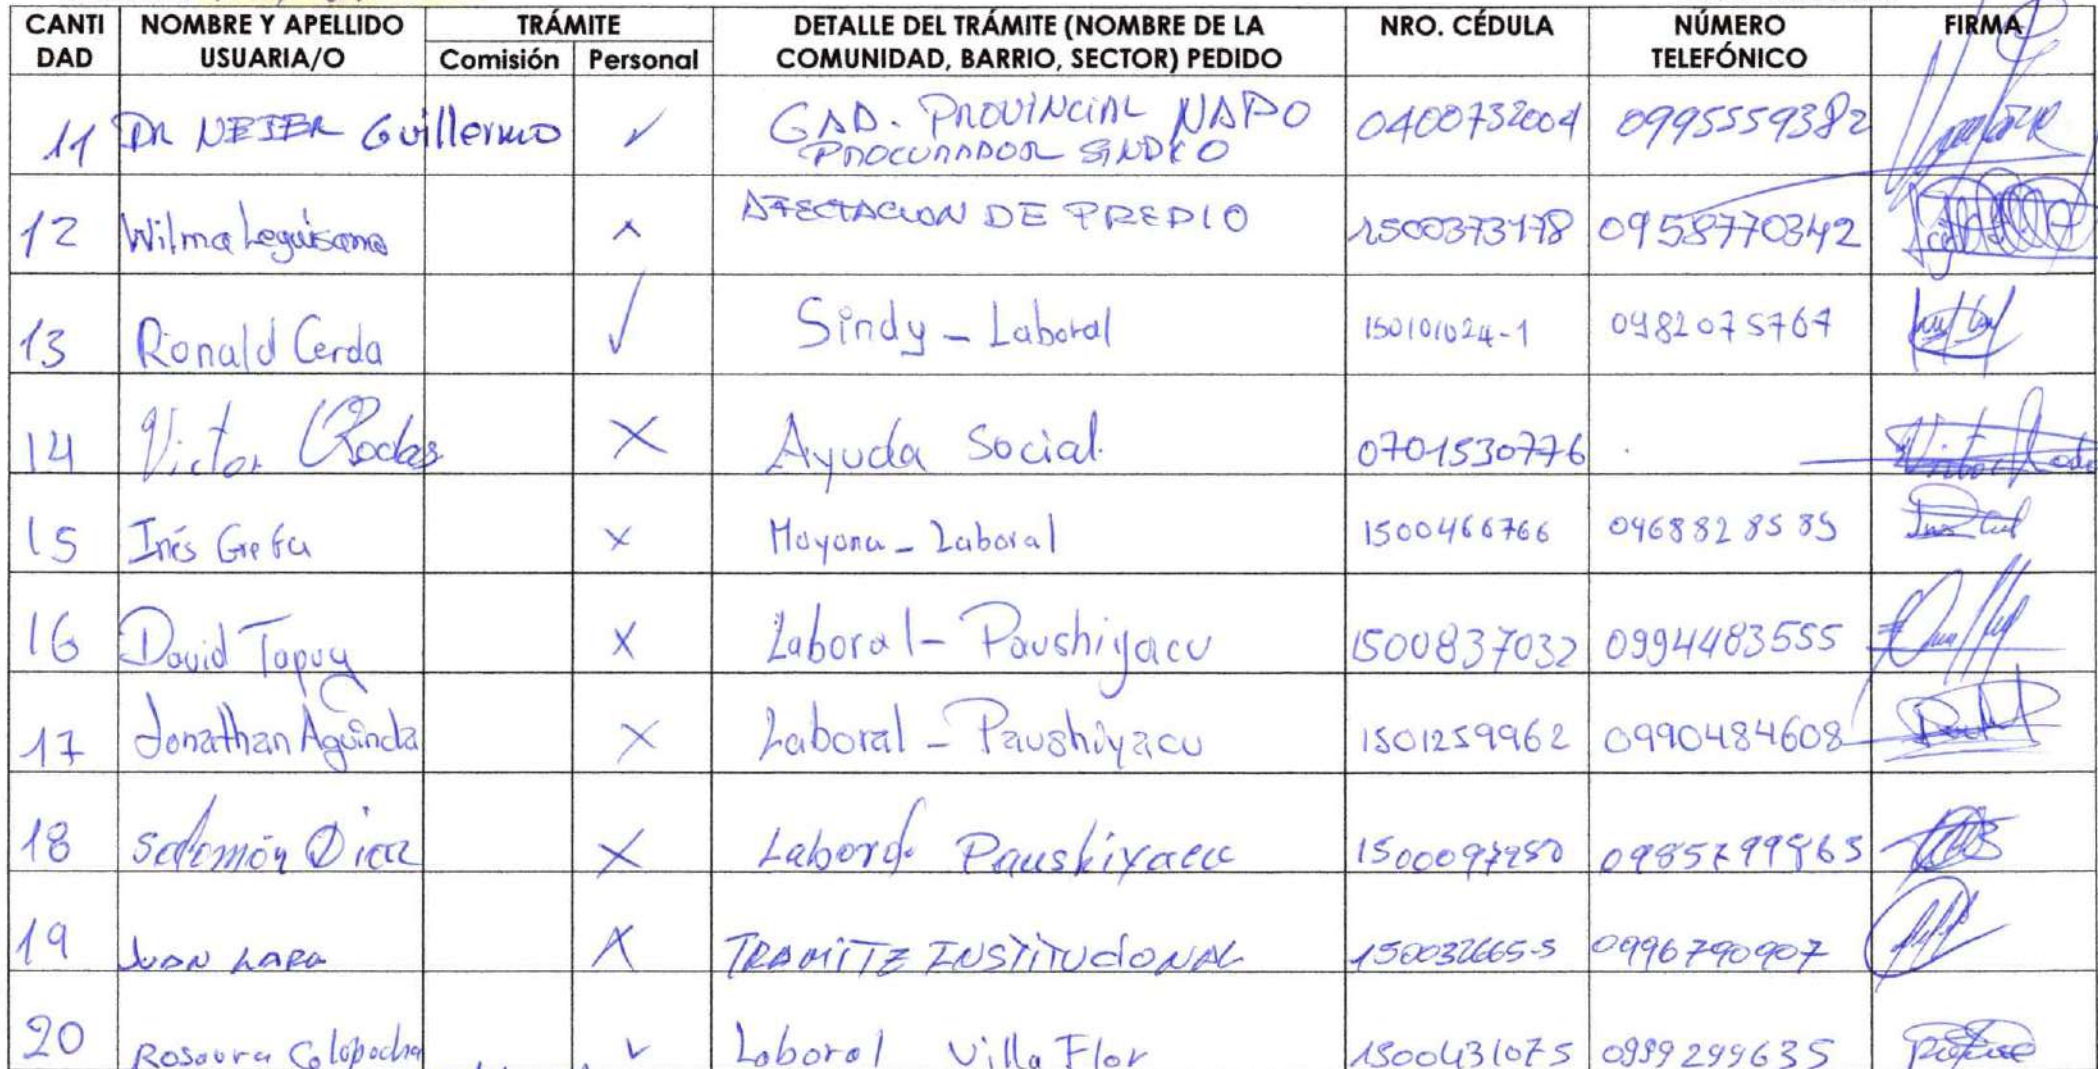 CANTI DAD | NOMBRE Y APELLIDO USUARIA/O | TRÁMITE | DETALLE DEL TRÁMITE (NOMBRE DE LA COMUNIDAD, BARRIO, SECTOR) PEDIDO | NRO. CÉDULA | NÚMERO TELEFÓNICO | FIRMA
Comisión | Personal
11 DR NEJER Guillermo ✓ GAD. PROVINCIAL NAPO PROCURADOR SINDICO 0400732004 0995559382
12 Wilma Leguisamo x AFECTACION DE PREDIO 1500373178 0958770342
13 Ronald Cerda ✓ Sindy - Laboral 150101024-1 0482075767
14 Victor Rodas X Ayuda Social. 0701530776
15 Inés Grefa x Moyona - Laboral 1500466766 0968828585
16 David Tapuy X Laboral - Paushiyacu 1500837032 0994483555
17 Jonathan Aguinda X Laboral - Paushiyacu 1501259962 0990484608
18 Salomón Diaz X Laboral. Paushiyacu
19 JUAN LARA X TRAMITE INSTITUCIONAL 150032665-5 0996790907
20 Rosaura ✓ Laboral Villa Flor 1500431075 0999299635